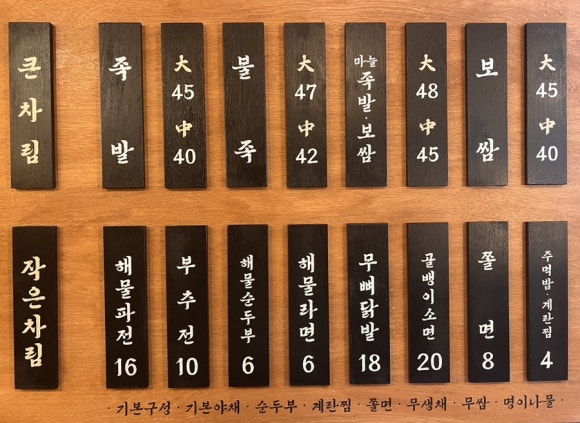 큰차림
족발
大
45
中
40
불족
大
47
中
42
마늘
족발·보쌈
大
48
中
45
보쌈
大
45
中
40
작은차림
해물파전
16
부추전
10
해물순두부
6
해물라면
6
무뼈닭발
18
골뱅이소면
20
쫄면
8
주먹밥 계란찜
4
·기본구성·기본야채·순두부·계란찜·쫄면·무생채·무쌈·명이나물·